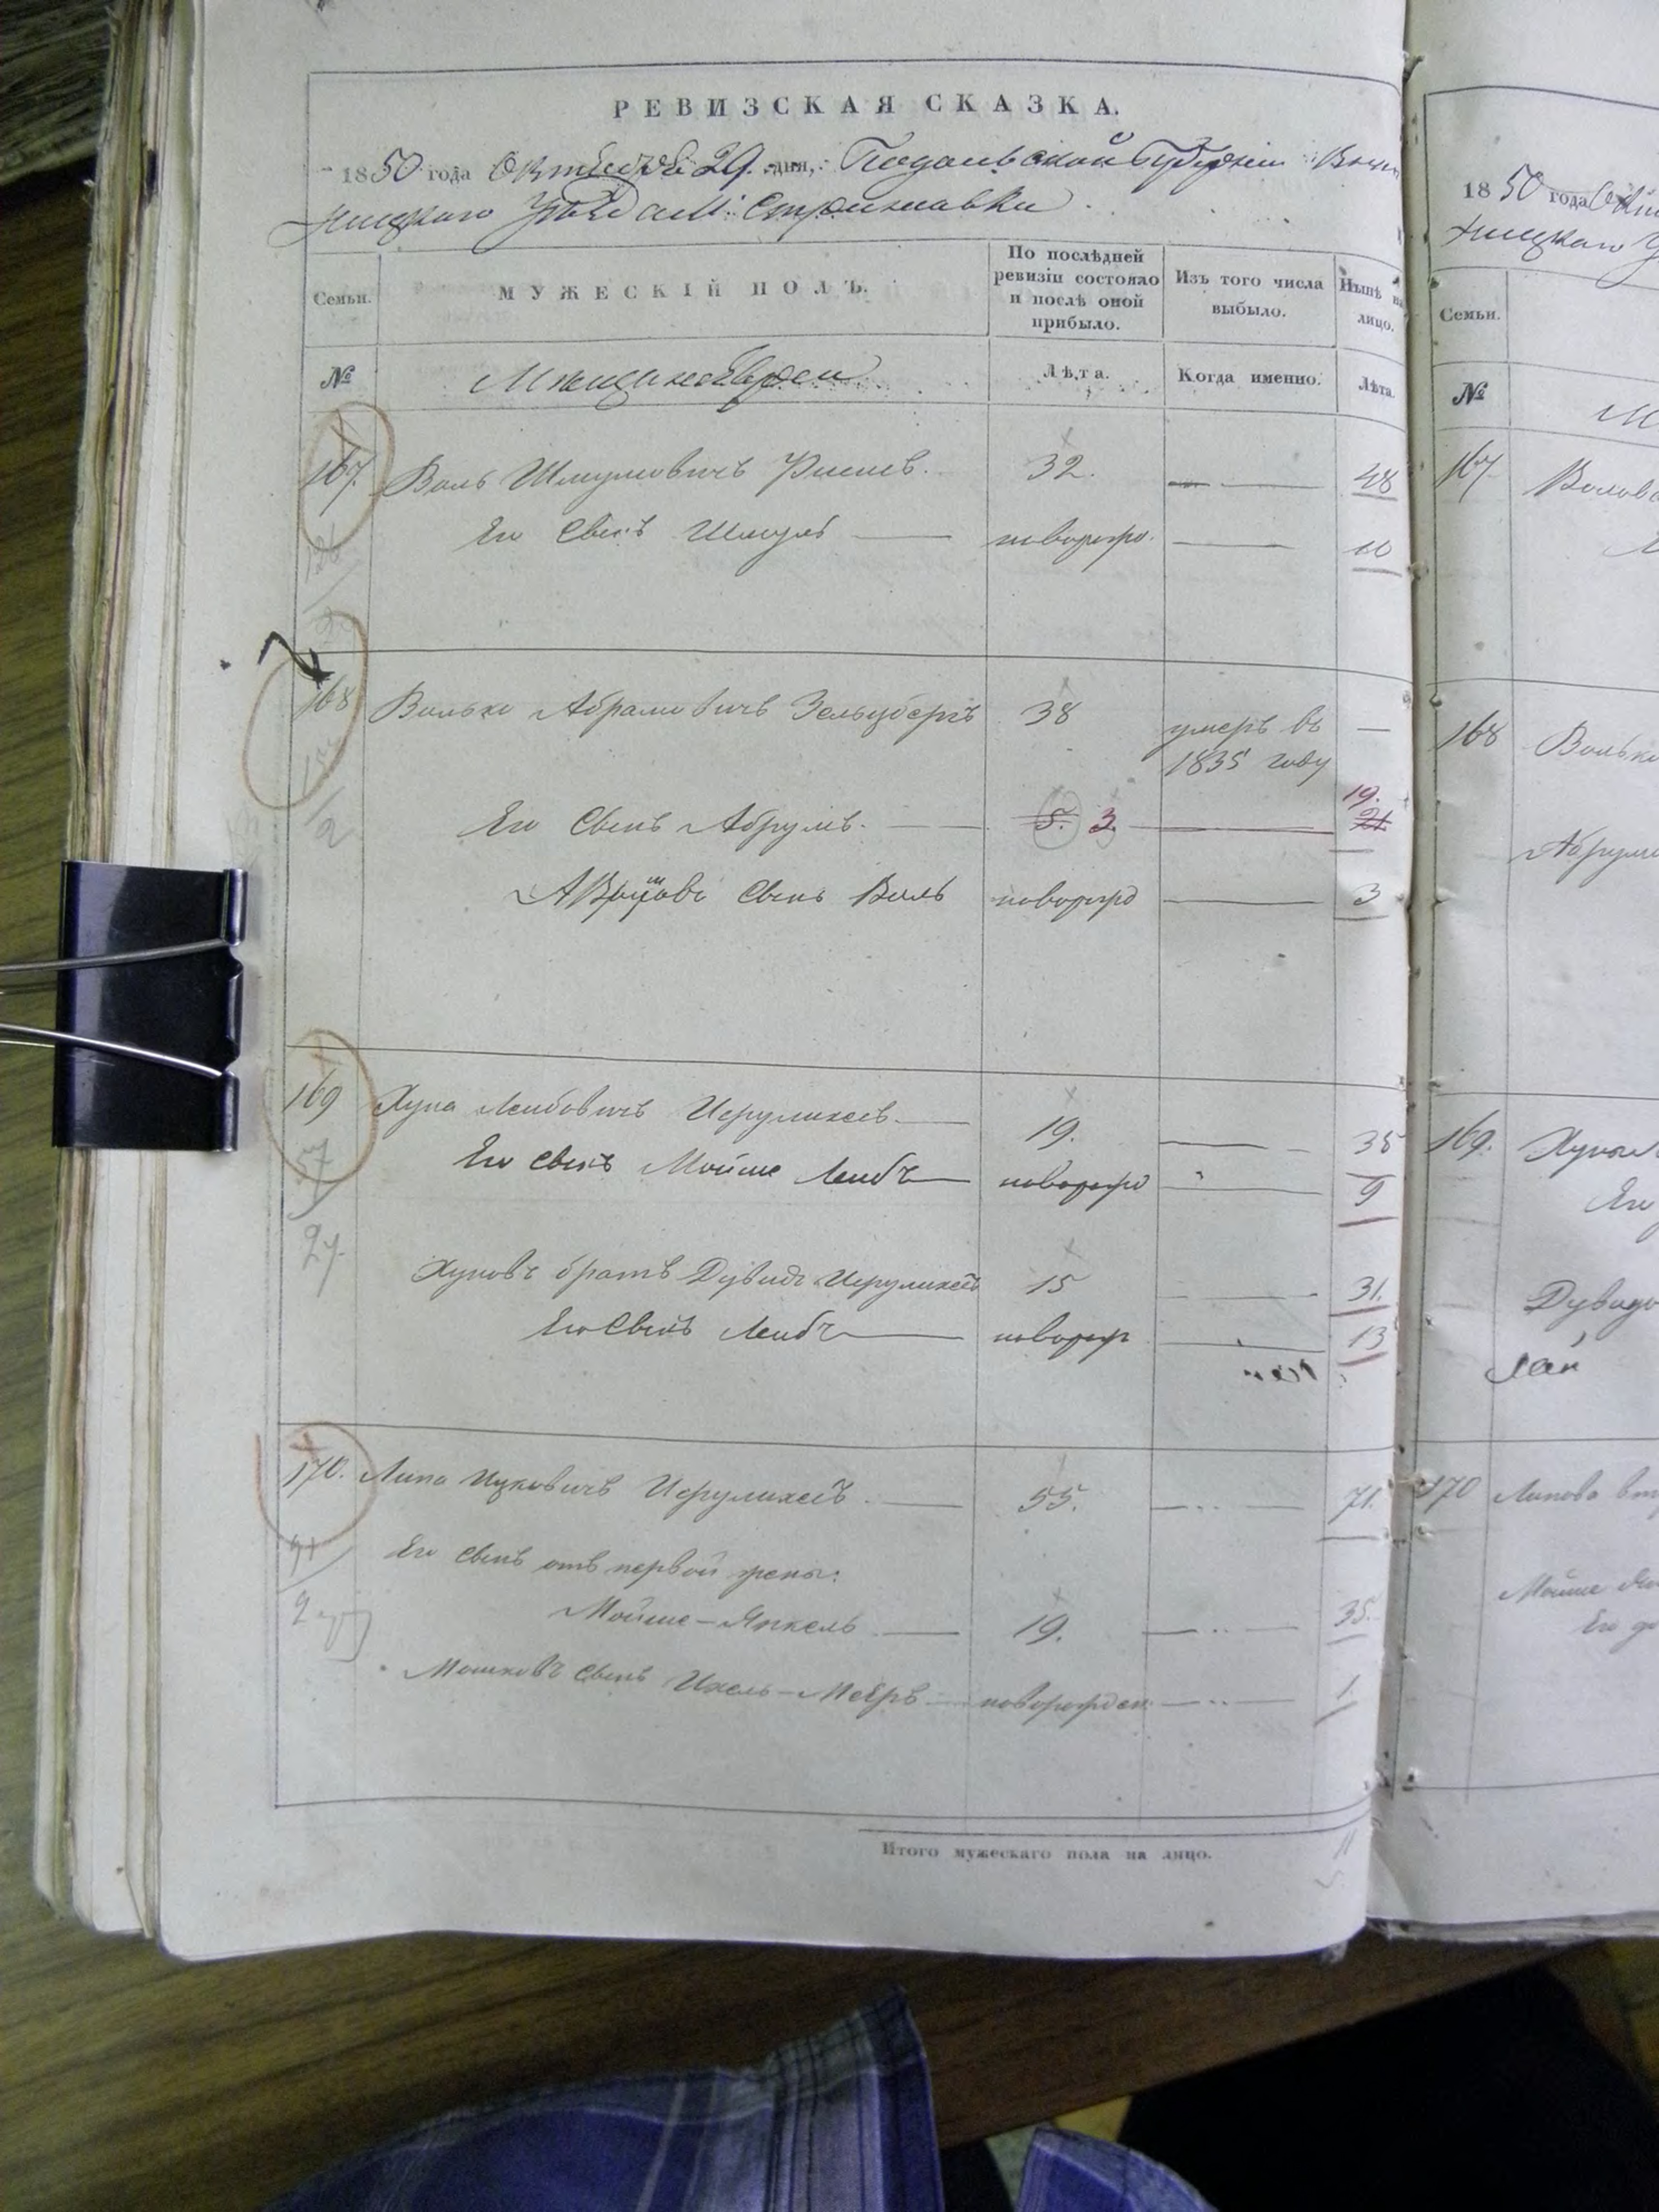 РЕВИЗСКАЯ СКАЗКА.
1850 года Октября 29 дня, Подольской Губернии Вин
ницкаго Уѣзда М. Стрижавки
Семьи.
МУЖЕСКІЙ ПОЛЪ.
По послѣдней ревизіи состояло и послѣ оной прибыло.
Изъ того числа выбыло.
Нынѣ на лицо.
№ Мѣщане Евреи Лѣта. Когда именно. Лѣта.
167.Воль Шмулевичъ 32. 48
Его Сынъ Шмуль новорож. 10
168 Волько Абрамовичъ Зельцбергъ 38 умеръ въ —
1835 году
19.
Его Сынъ Абрумъ. 5. 3. 21
Сынъ Воль новорожд 3
1/2
169 Хуна Лейбовичъ Исруликесъ 19. 35
Его Сынъ Мойше Лейбъ новорожд 9
57
27.
Хуновъ братъ Дувидъ Исруликесъ 15 31.
Его Сынъ Лейбъ новорож 13
170. Липа Ицковичъ Исруликесъ 55. 71.
Его Сынъ отъ первой жены:
Мойше-Янкель 19. 35.
Мошковъ Сынъ Ихель-Мееръ новорожден 1.
Итого мужескаго пола на лицо.
1850 года
ницкаго У
Семьи.
№
М
167
168 Волько
169. Хуны
Его
Дувида
170 Липова
Мойше
Его